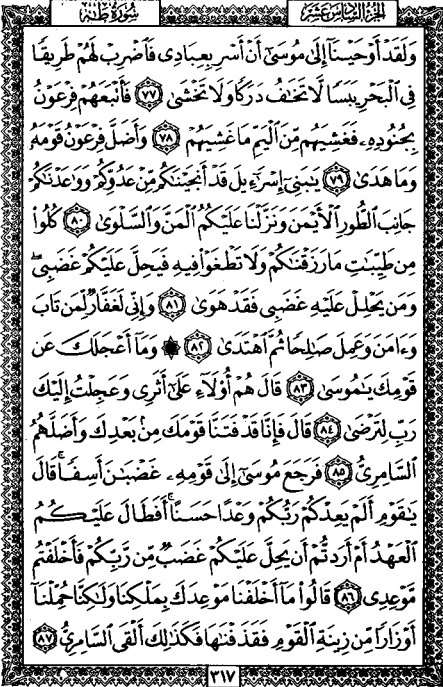 الجزء السادس عشر
سورة طه
وَلَقَدْ أَوْحَيْنَآ إِلَىٰ مُوسَىٰٓ أَنْ أَسْرِ بِعِبَادِى فَٱضْرِبْ لَهُمْ طَرِيقًا
فِى ٱلْبَحْرِ يَبَسًا لَّا تَخَـٰفُ دَرَكًا وَلَا تَخْشَىٰ ٧٧ فَأَتْبَعَهُمْ فِرْعَوْنُ
بِجُنُودِهِۦ فَغَشِيَهُم مِّنَ ٱلْيَمِّ مَا غَشِيَهُمْ ٧٨ وَأَضَلَّ فِرْعَوْنُ قَوْمَهُۥ
وَمَا هَدَىٰ ٧٩ يَـٰبَنِىٓ إِسْرَٰٓءِيلَ قَدْ أَنجَيْنَـٰكُم مِّنْ عَدُوِّكُمْ وَوَٰعَدْنَـٰكُمْ
جَانِبَ ٱلطُّورِ ٱلْأَيْمَنَ وَنَزَّلْنَا عَلَيْكُمُ ٱلْمَنَّ وَٱلسَّلْوَىٰ ٨٠ كُلُوا۟
مِن طَيِّبَـٰتِ مَا رَزَقْنَـٰكُمْ وَلَا تَطْغَوْا۟ فِيهِ فَيَحِلَّ عَلَيْكُمْ غَضَبِى ۖ
وَمَن يَحْلِلْ عَلَيْهِ غَضَبِى فَقَدْ هَوَىٰ ٨١ وَإِنِّى لَغَفَّارٌ لِّمَن تَابَ
وَءَامَنَ وَعَمِلَ صَـٰلِحًا ثُمَّ ٱهْتَدَىٰ ٨٢ ۞ وَمَآ أَعْجَلَكَ عَن
قَوْمِكَ يَـٰمُوسَىٰ ٨٣ قَالَ هُمْ أُو۟لَآءِ عَلَىٰٓ أَثَرِى وَعَجِلْتُ إِلَيْكَ
رَبِّ لِتَرْضَىٰ ٨٤ قَالَ فَإِنَّا قَدْ فَتَنَّا قَوْمَكَ مِنۢ بَعْدِكَ وَأَضَلَّهُمُ
ٱلسَّامِرِىُّ ٨٥ فَرَجَعَ مُوسَىٰٓ إِلَىٰ قَوْمِهِۦ غَضْبَـٰنَ أَسِفًا ۚ قَالَ
يَـٰقَوْمِ أَلَمْ يَعِدْكُمْ رَبُّكُمْ وَعْدًا حَسَنًا ۚ أَفَطَالَ عَلَيْكُمُ
ٱلْعَهْدُ أَمْ أَرَدتُّمْ أَن يَحِلَّ عَلَيْكُمْ غَضَبٌ مِّن رَّبِّكُمْ فَأَخْلَفْتُم
مَّوْعِدِى ٨٦ قَالُوا۟ مَآ أَخْلَفْنَا مَوْعِدَكَ بِمَلْكِنَا وَلَـٰكِنَّا حُمِّلْنَآ
أَوْزَارًا مِّن زِينَةِ ٱلْقَوْمِ فَقَذَفْنَـٰهَا فَكَذَٰلِكَ أَلْقَى ٱلسَّامِرِىُّ ٨٧
٣١٧